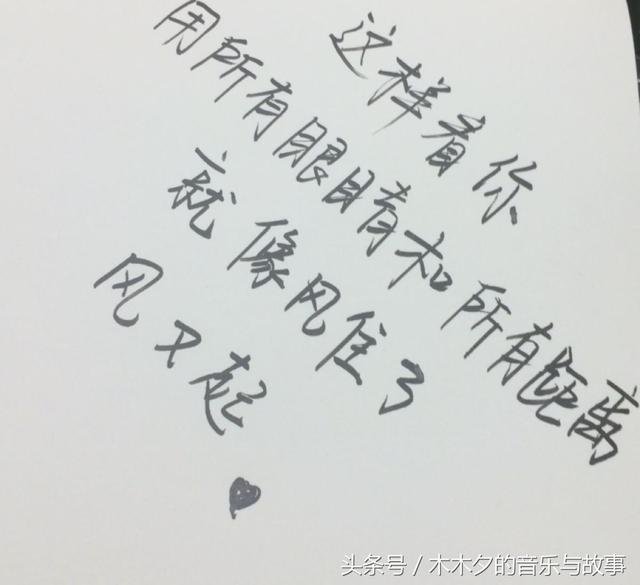 这样看你
用所有眼睛和所有距离
就像风住了
风又起
头条号/木木夕的音乐与故事